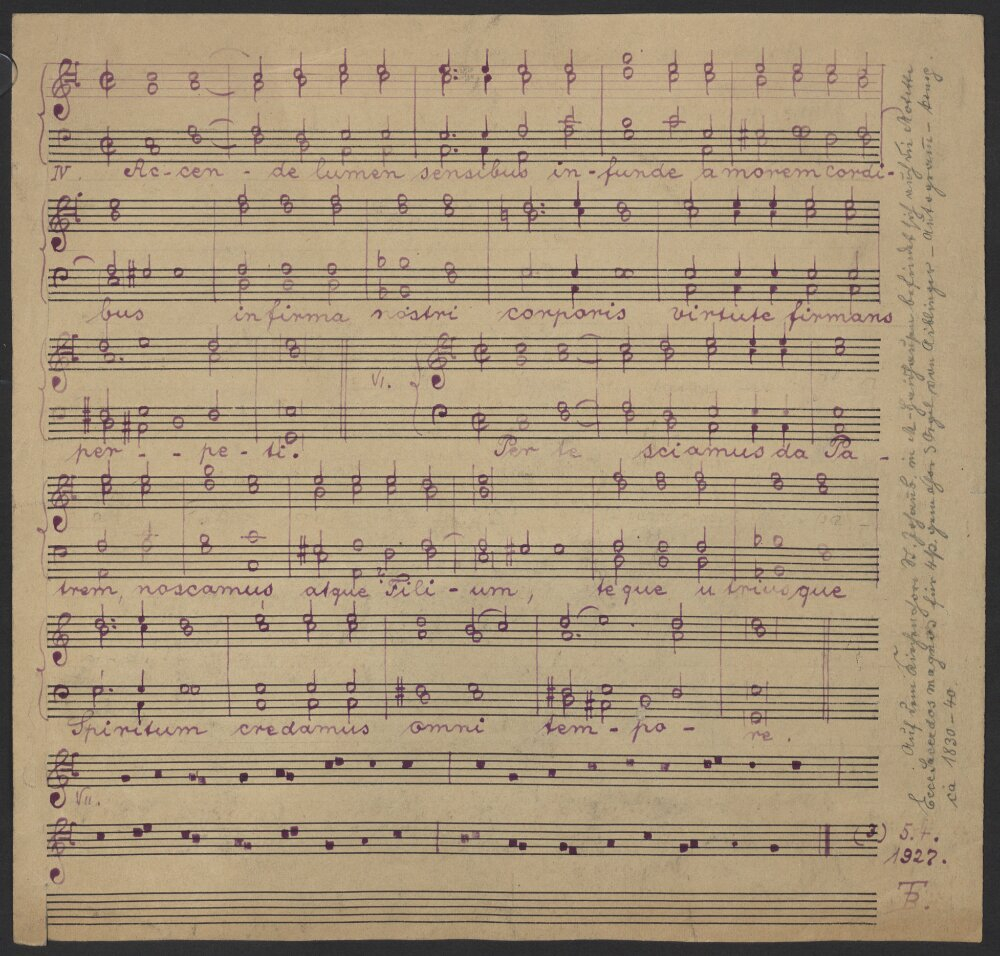 IV. Ac-cen - de lumen sensibus in-funde amorem cordi-
bus infirma nostri corporis virtute firmans
per - - pe - ti.
VI. Per te sciamus da Pa -
trem, noscamus atque Fili - um, te que utriusque
Spiritum credamus omni tem - po - re.
VII.
5.4.
1927.
Auf dem Kirchenchor St. in befindet sich auch die Motette
Ecce sacerdos magnus für 4st. gem. Chor & Orgel von Aiblinger - Autogram -
ca 1830-40.